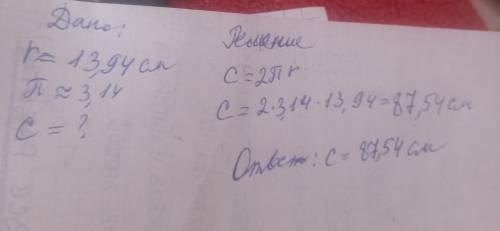 Дано:
r = 13,94 см
π ≈ 3,14
C = ?
Решение
C = 2πr
C = 2·3,14·13,94 = 87,54 см
Ответ: C = 87,54 см